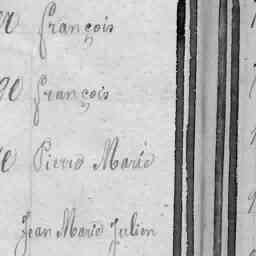 François
François
Pierre Marie
Jean Marie Julien